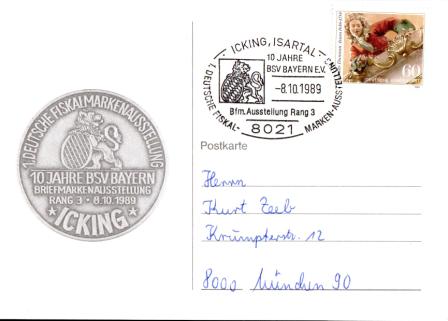 1. DEUTSCHE FISKALMARKENAUSSTELLUNG
10 JAHRE BSV BAYERN
BRIEFMARKENAUSSTELLUNG
RANG 3 · 8.10.1989
★ ICKING ★
ICKING, ISARTAL
10 JAHRE
BSV BAYERN E.V.
-8.10.1989
Bfm. Ausstellung Rang 3
1. DEUTSCHE FISKAL-
MARKEN-AUSSTELLUNG
8021
60
Postkarte
Herrn
Kurt Zeeb
Krumpterstr. 12
8000 München 90